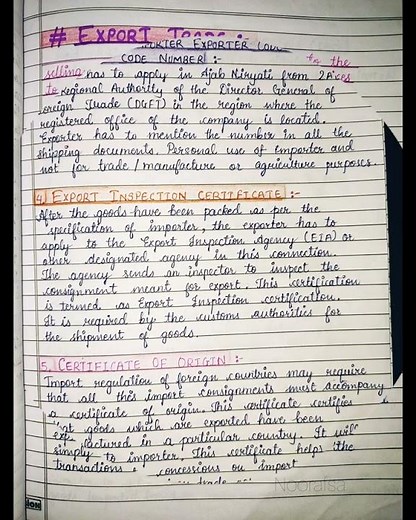 # EXPORT TRADE :-
IMPORTER EXPORTER
CODE NUMBER :-
for the
selling has to apply in Ajab Niryati from 2A
to regional Authority of the Director General of
Foreign Trade (DGFT) in the region where the
registered office of the company is located.
Exporter has to mention the number in all the
shipping documents. Personal use of importer and
not for trade / manufacture or agriculture purposes.
4. EXPORT INSPECTION CERTIFICATE :-
After the goods have been packed as per the
specification of importer, the exporter has to
apply to the Export Inspection Agency (EIA) or
other designated agency in this connection.
The agency sends an inspector to inspect the
consignment meant for export. This certification
is termed as Export Inspection certification.
It is required by the customs authorities for
the shipment of goods.
5. CERTIFICATE OF ORIGIN :-
Import regulation of foreign countries may require
that all this import consignments must accompany
a certificate of origin. This certificate certifies
that goods which are exported have been
factured in a particular country. It will
simply to importer. This certificate helps the
transactions concessions on import
Noorafsa